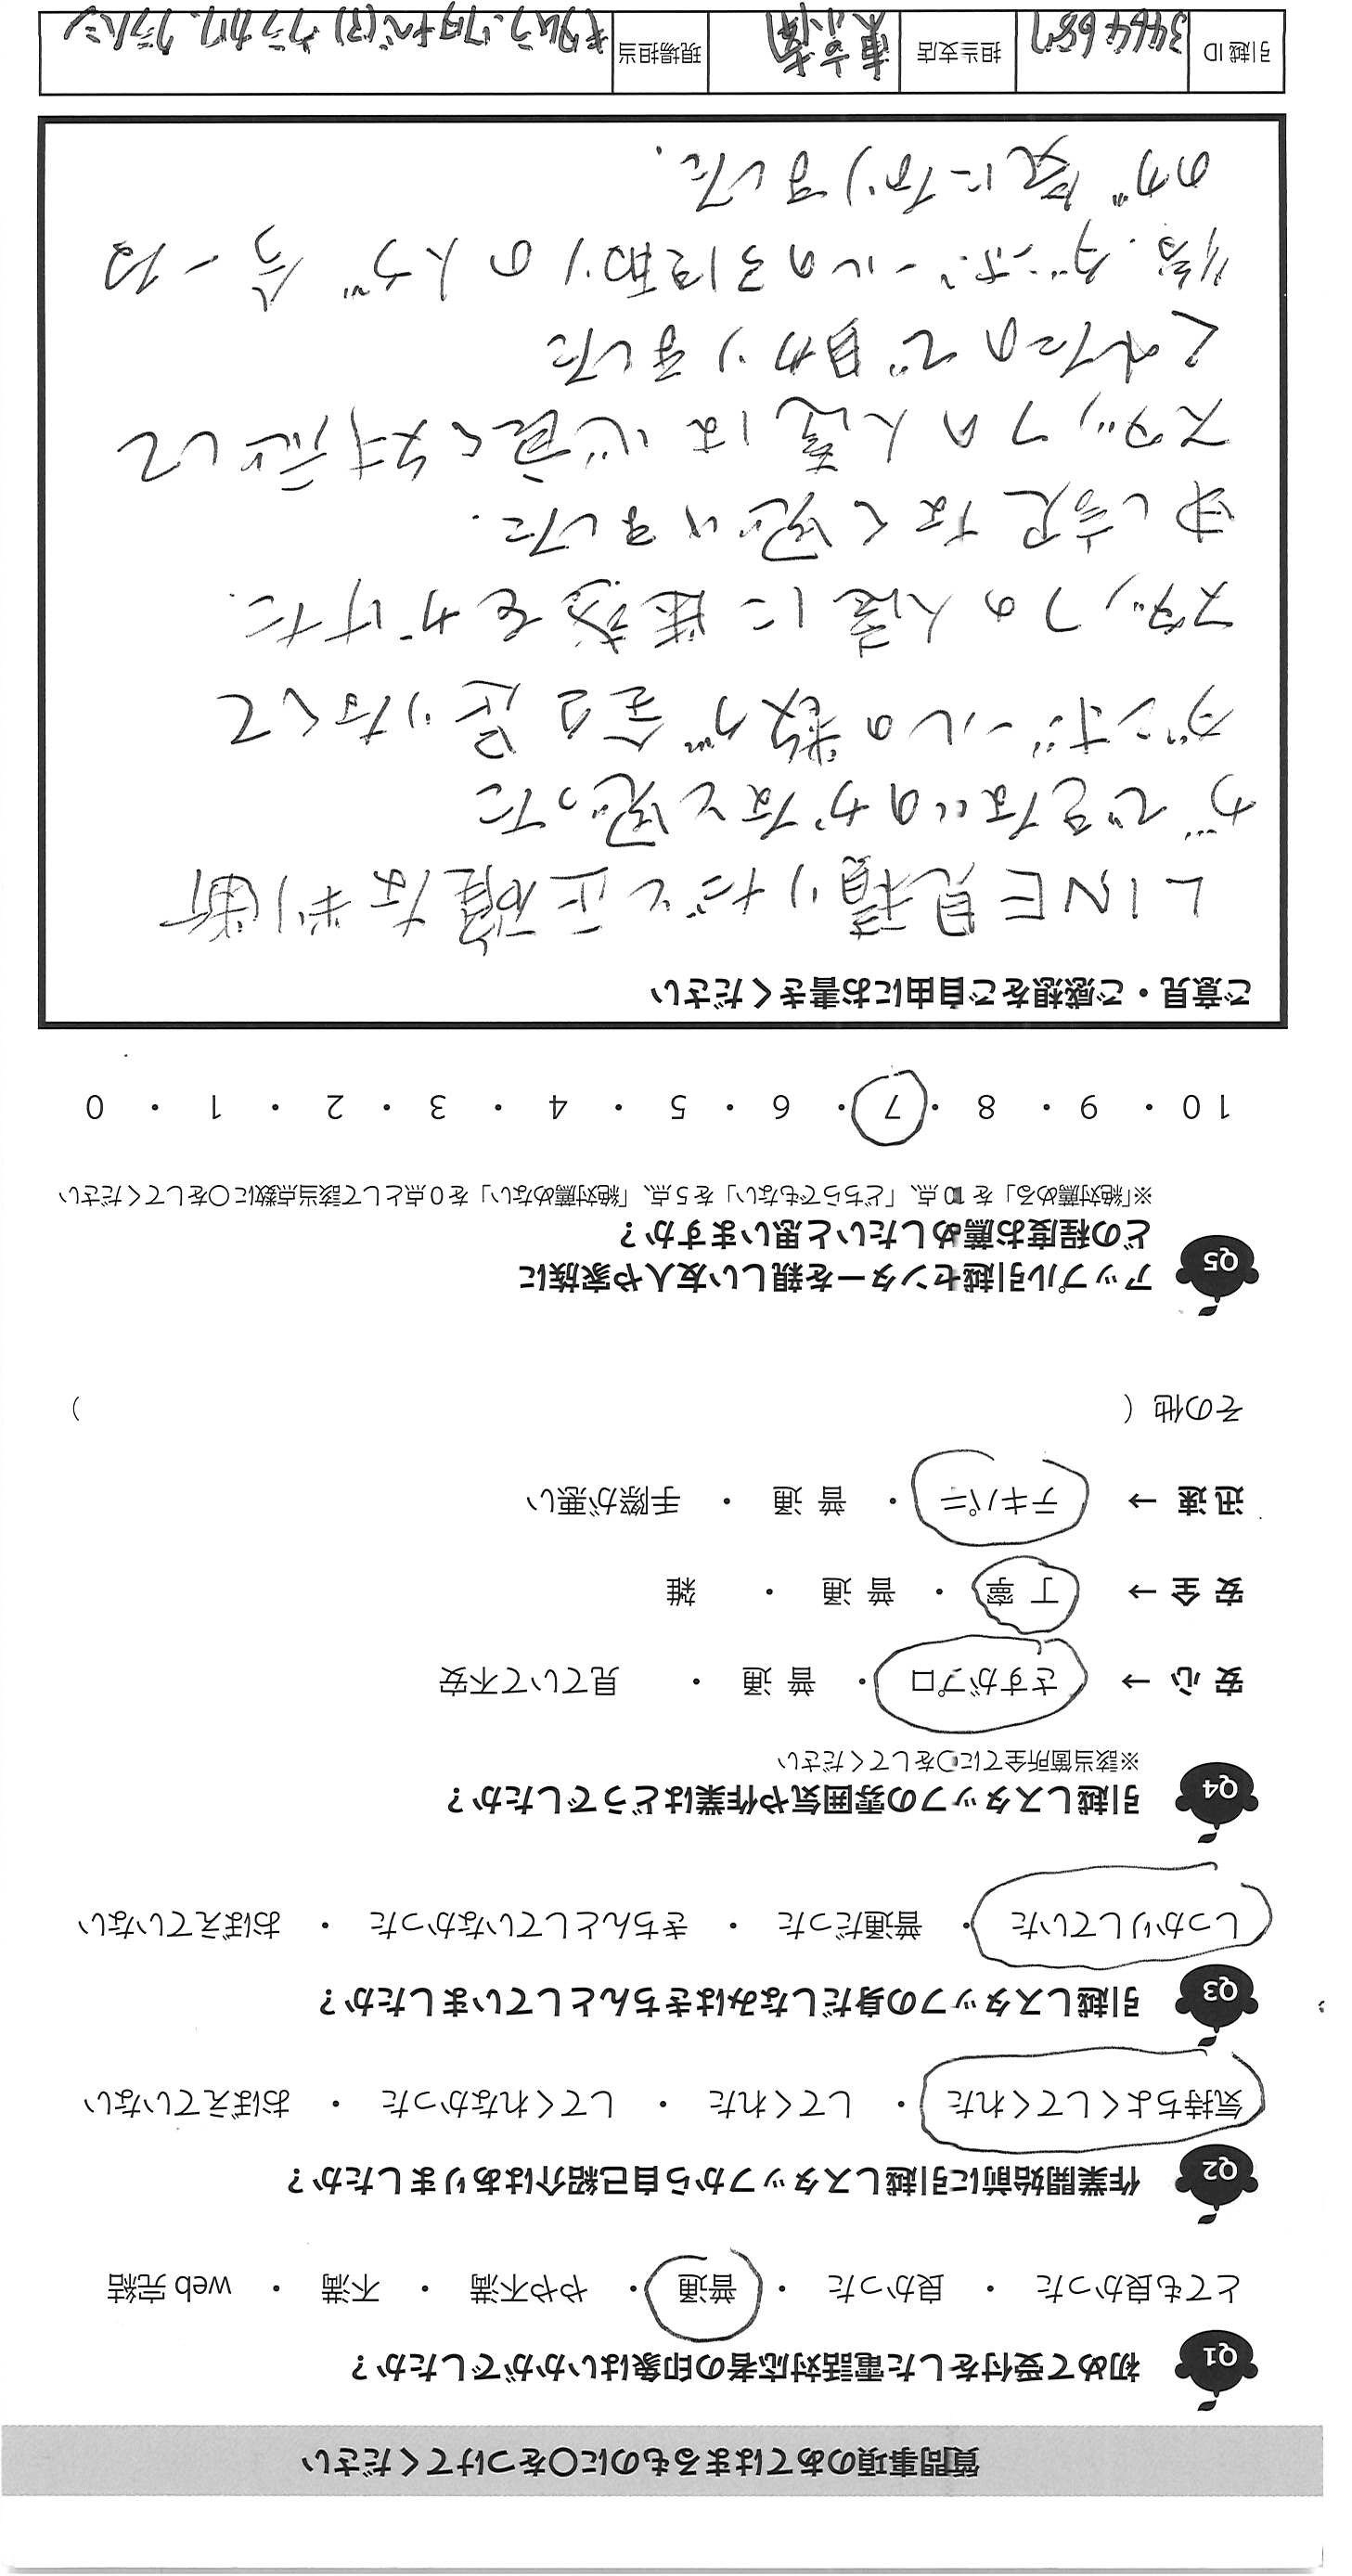 質問事項のあてはまるものに〇をつけてください
Q1 初めて受付をした電話対応者の印象はいかがでしたか？
とても良かった ・ 良かった ・ 普通 ・ やや不満 ・ 不満 ・ web 完結
Q2 作業開始前に引越しスタッフから自己紹介はありましたか？
気持ちよくしてくれた ・ してくれた ・ してくれなかった ・ おぼえていない
Q3 引越しスタッフの身だしなみはきちんとしていましたか？
しっかりしていた ・ 普通だった ・ きちんとしていなかった ・ おぼえていない
Q4 引越しスタッフの雰囲気や作業はどうでしたか？
※該当箇所全てに〇をしてください
安 心 → さすがプロ ・ 普 通 ・ 見ていて不安
安 全 → 丁 寧 ・ 普 通 ・ 雑
迅 速 → テキパキ ・ 普 通 ・ 手際が悪い
その他（ ）
Q5 アップル引越センターを親しい友人や家族に
どの程度お薦めしたいと思いますか？
※「絶対薦める」を 10 点、「どちらでもない」を 5 点、「絶対薦めない」を 0 点として該当点数に〇をしてください
10 ・ 9 ・ 8 ・ 7 ・ 6 ・ 5 ・ 4 ・ 3 ・ 2 ・ 1 ・ 0
ご意見・ご感想をご自由にお書きください
LINE見積りだと正確な判断
ができないのかなと思った
ダンボールの数が全く足りなくて
スタッフの人達に迷惑をかけた
申し訳なく思いました.
スタッフの人達は心良く対応して
くれたので助かりました
後、ダンボールの引取りの人が 今一つ
のが気になりました.
引越 ID 3464687 担当支店 現場担当